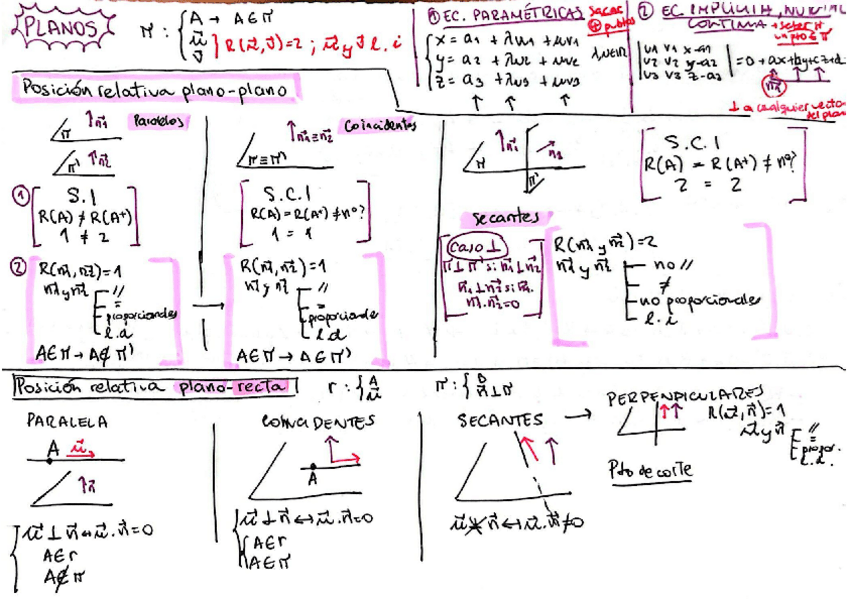 PLANOS
π : { A → A ∈ π
u⃗
v⃗ } R(u⃗,v⃗)=2 ; u⃗ y v⃗ l.i
① EC. PARAMÉTRICAS
Sacar ⊕ puntos
x = a1 + λu1 + μv1
y = a2 + λu2 + μv2
z = a3 + λu3 + μv3
λ,μ∈ℝ
② EC. IMPLÍCITA, NORMAL
CONTINUA
u1 v1 x-a1
u2 v2 y-a2
u3 v3 z-a3
= 0 → ax+by+cz+d
⊥ a cualquier vector
del plano
Posición relativa plano-plano
π ↑n1⃗ Paralelos
π' ↑n2⃗
① S.I
R(A) ≠ R(A+)
1 ≠ 2
② R(n1⃗,n2⃗)=1
n1⃗ y n2⃗
//
=
proporcionales
l.d
A∈π → A∉π'
↑n1⃗≡n2⃗ Coincidentes
π≡π'
S.C.I
R(A)=R(A+) ≠ nº?
1 = 1
R(n1⃗,n2⃗)=1
n1⃗ y n2⃗
//
=
proporcionales
l.d
A∈π → A∈π'
π ↑n1⃗ n2
π'
Secantes
S.C.I
R(A) = R(A+) ≠ nº?
2 = 2
caso ⊥
π⊥π' si n1⃗⊥n2⃗
n1⃗⊥n2⃗ si
n1⃗.n2⃗=0
R(n1⃗ y n2⃗)=2
n1⃗ y n2⃗
no //
≠
no proporcionales
l.i
Posición relativa plano-recta
r : { A
u⃗
π : { B
n⃗⊥π
PARALELA
A u⃗
↑n⃗
u⃗⊥n⃗ ↔ u⃗.n⃗=0
A∈r
A∉π
COINCIDENTES
A
u⃗⊥n⃗ ↔ u⃗.n⃗=0
A∈r
A∈π
SECANTES →
n⃗ ↔ u⃗.n⃗≠0
PERPENDICULARES
R(u⃗,n⃗)=1
u⃗ y n⃗
//
=
propor.
l.d.
Pto de corte